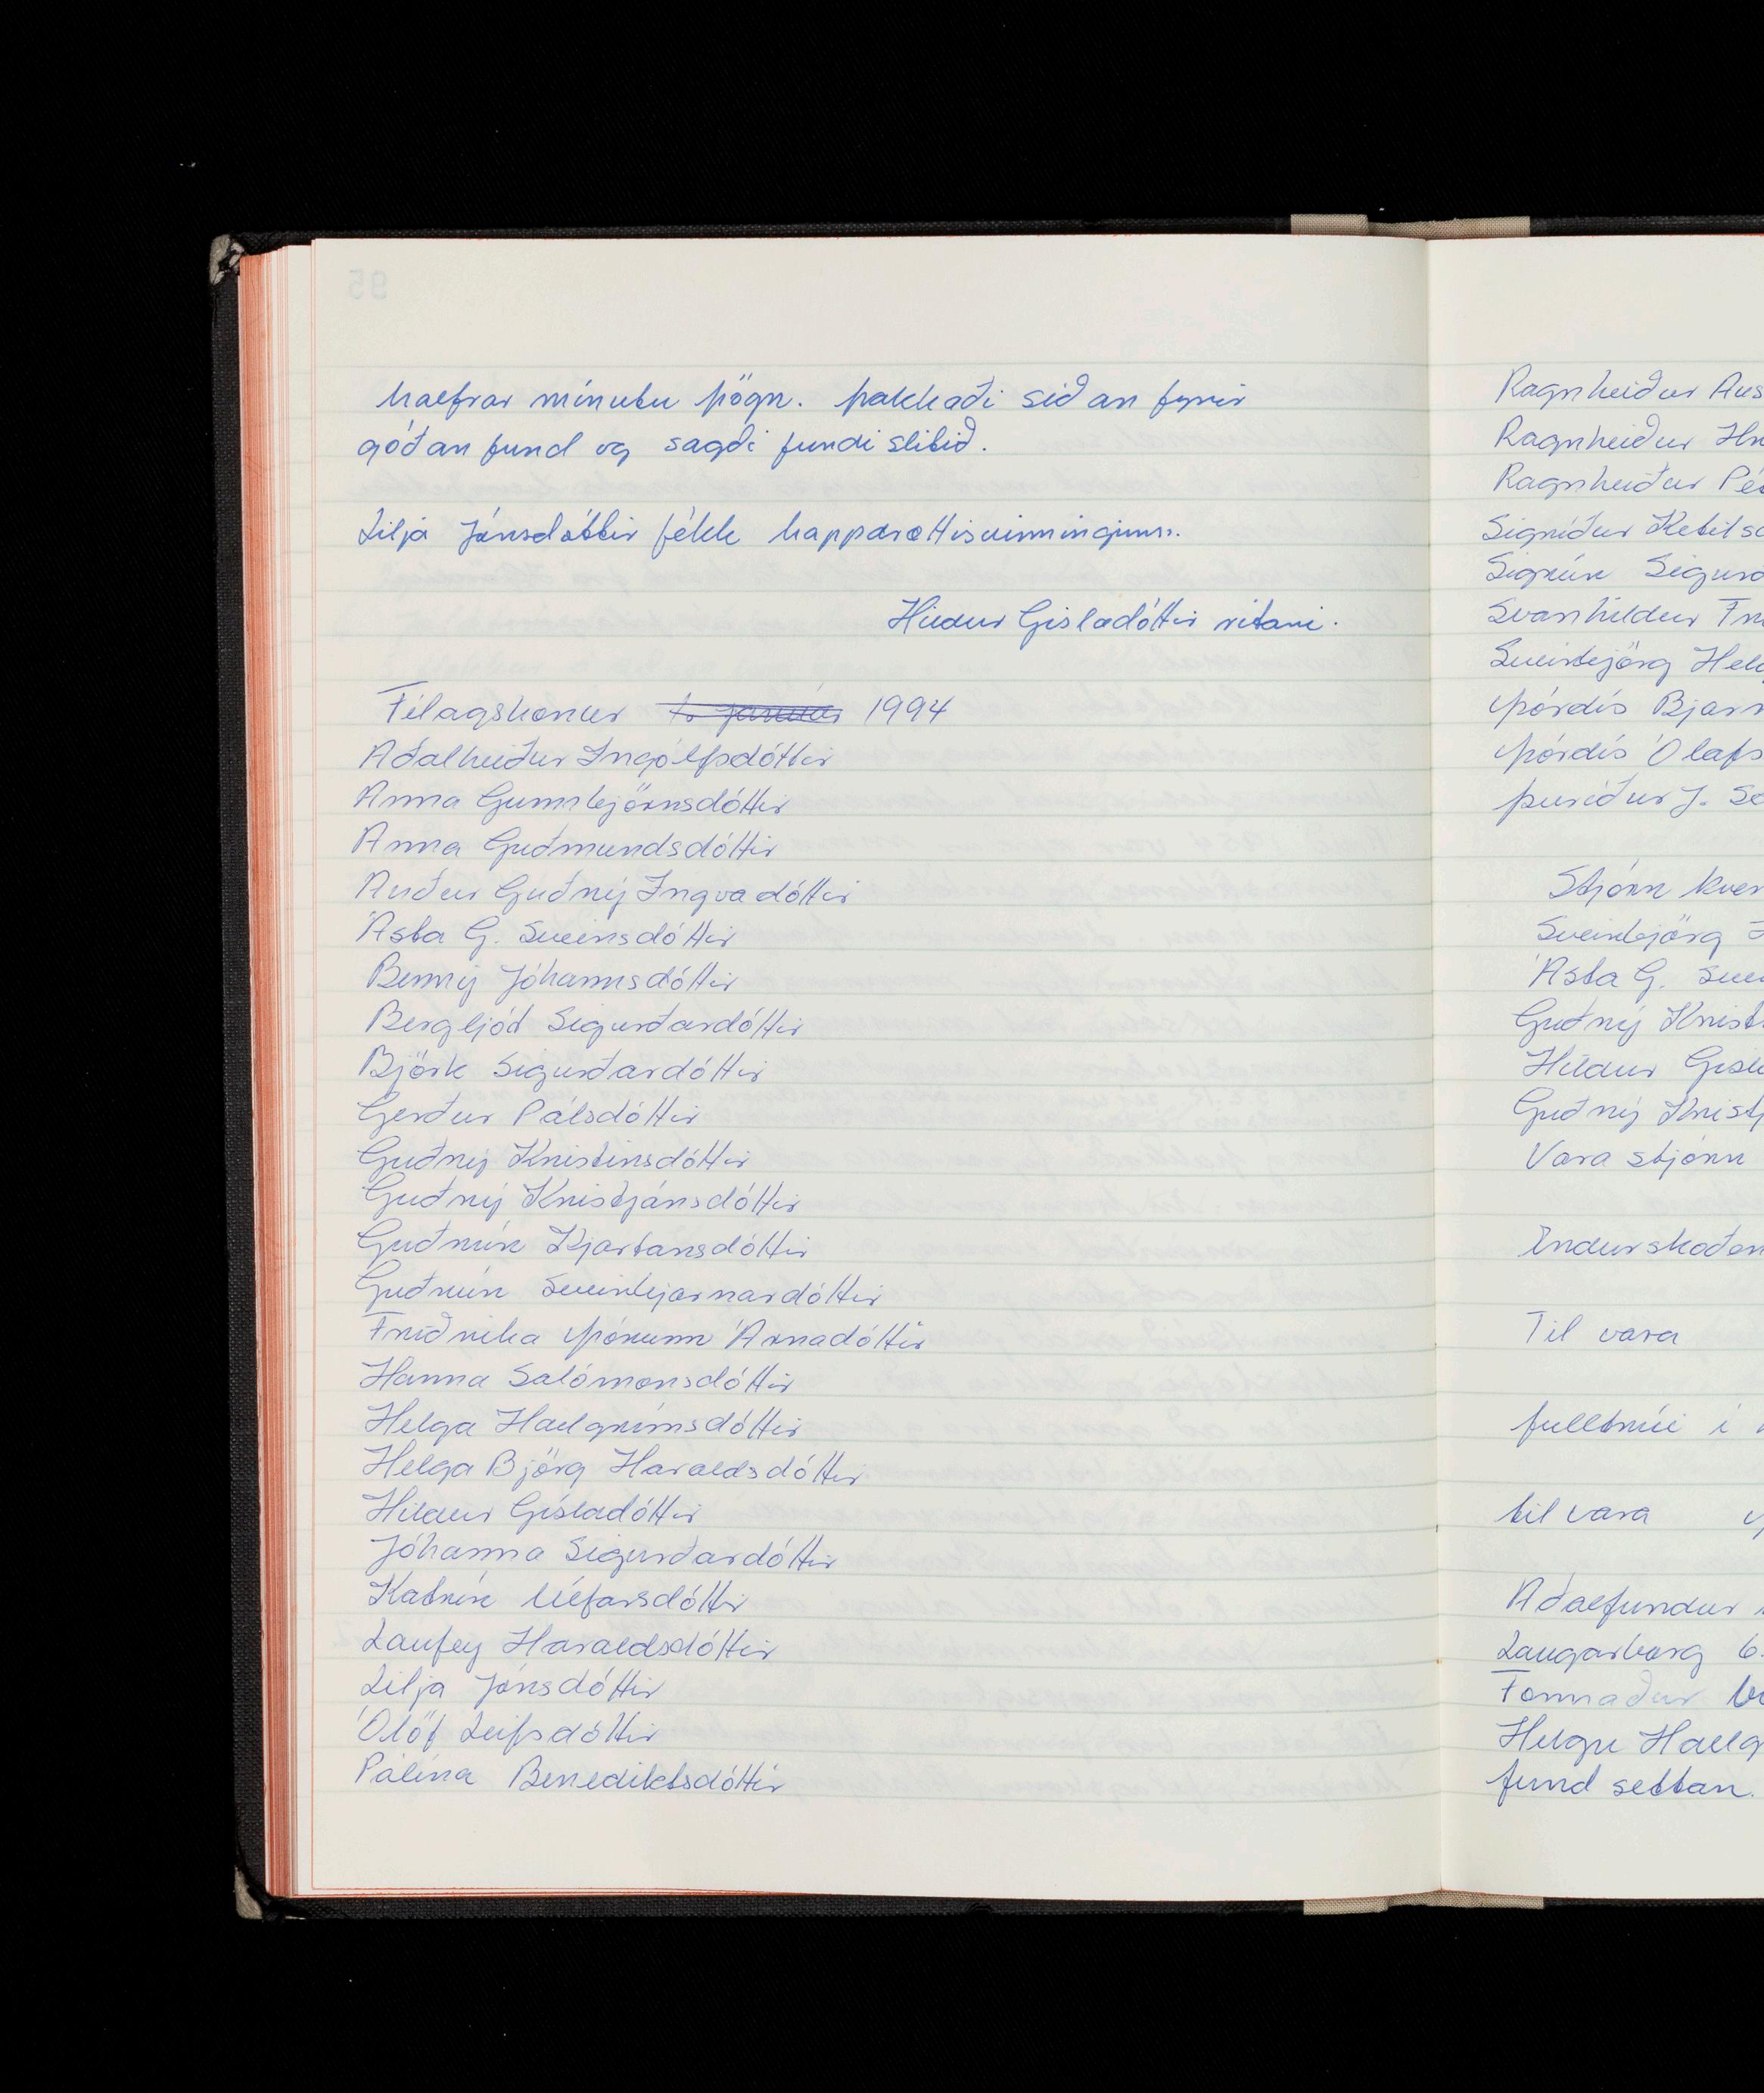 hálfrar mínutu þögn. þakkaði síðan fyrir
góðan fund og sagði fundi slitið.
Lilja Jónsdóttir fékk happdrættisvinninginn.
Hildur Gísladóttir ritari.
Félagskonur 1. janúar 1994
Aðalheiður Ingólfsdóttir
Anna Gunnbjörnsdóttir
Anna Guðmundsdóttir
Auður Guðný Ingvadóttir
Ásta G. Sveinsdóttir
Benný Jóhannsdóttir
Bergljót Sigurðardóttir
Björk Sigurðardóttir
Gerður Pálsdóttir
Guðný Kristinsdóttir
Guðný Kristjánsdóttir
Guðrún Kjartansdóttir
Guðrún Sveinbjarnardóttir
Friðrika Þórunn Árnadóttir
Hanna Salómonsdóttir
Helga Hallgrímsdóttir
Helga Björg Haraldsdóttir
Hildur Gísladóttir
Jóhanna Sigurðardóttir
Katrín Úlfarsdóttir
Laufey Haraldsdóttir
Lilja Jónsdóttir
Ólöf Leifsdóttir
Pálína Benediktsdóttir
Ragnheiður Aus
Ragnheiður
Ragnheiður Pét
Sigríður Ketilsd
Sigrún Sigurð
Svanhildur
Sveinbjörg Helg
Þórdís Bjarn
Þórdís Ólafs
Þuríður J.
Stjórn kven
Sveinbjörg
Ásta G. Svei
Guðný Krist
Hildur Gísl
Guðný Kristj
Vara stjórn
Endurskoðen
Til vara
fulltrúi í
til vara
Aðalfundur
Laugarborg 6.
Formaður
Helgu Hallg
fund settan.